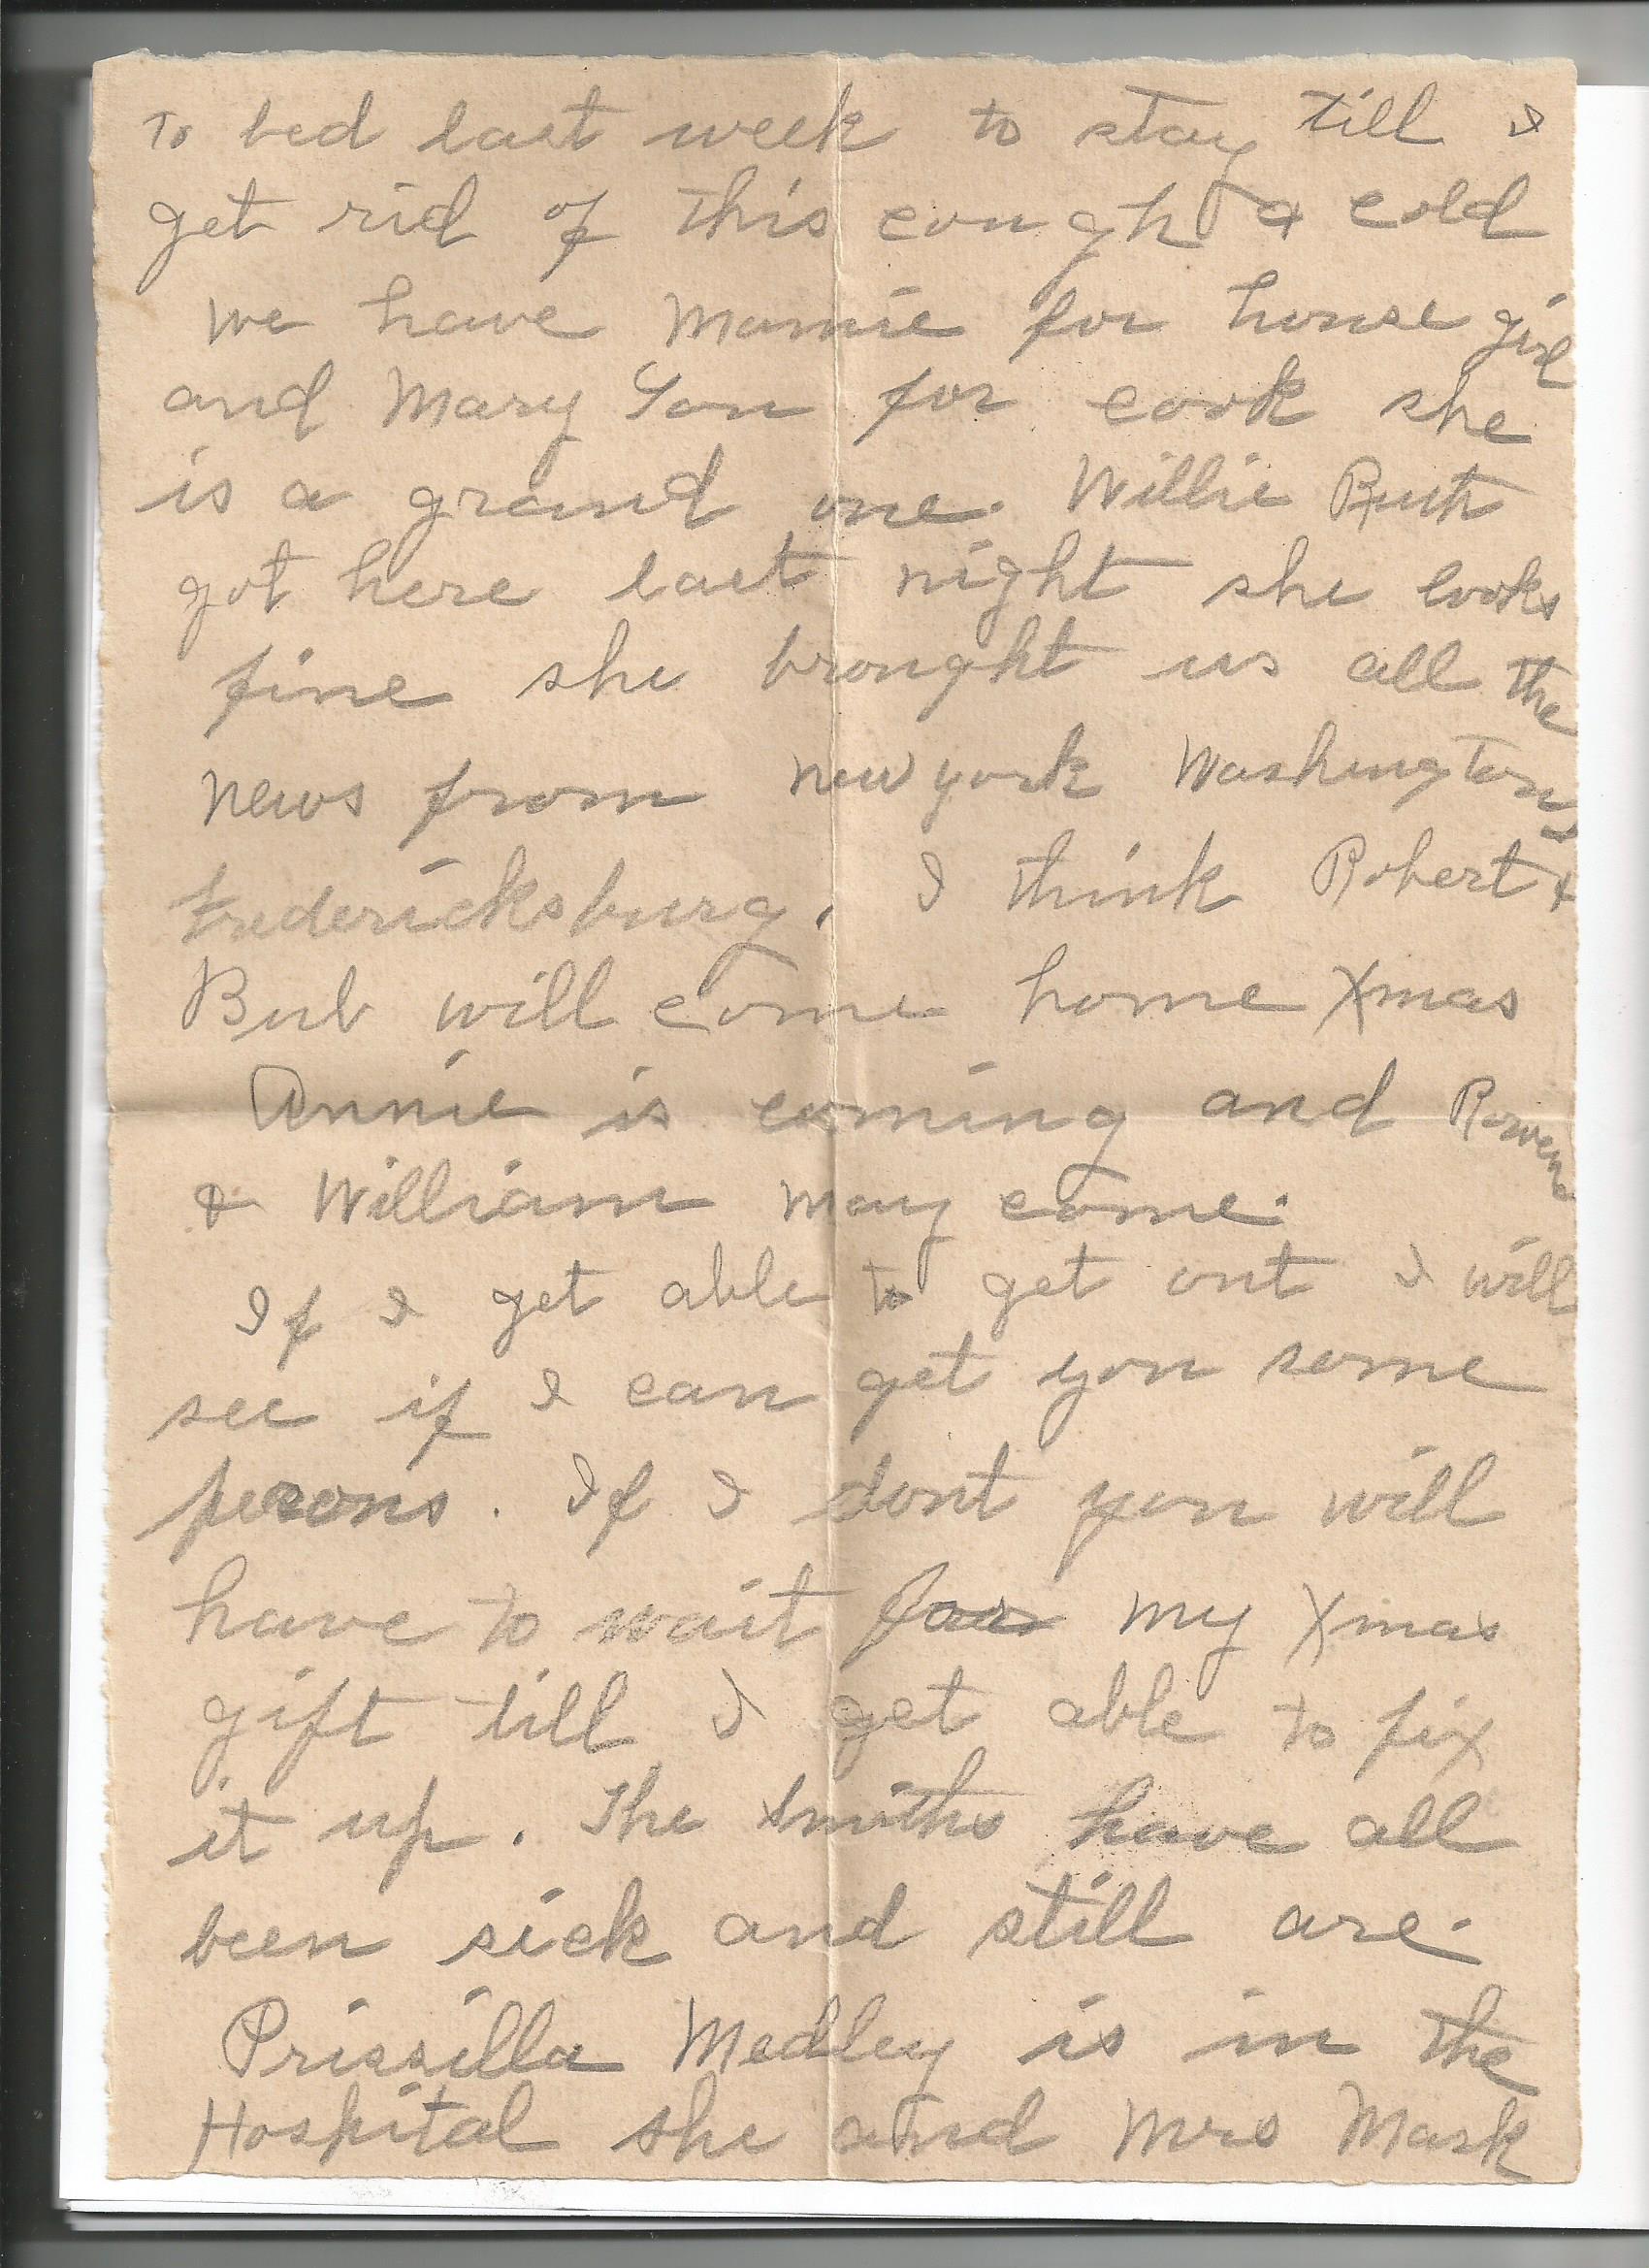 To bed last week to stay till I
get rid of this cough & cold
We have Mamie for house girl
and Mary Lou for cook she
is a grand one. Willie Ruth
got here last night she looks
fine she brought us all the
news from new york Washington
Fredericksburg. I think Robert &
Bub will come home Xmas
Annie is coming and Rowena
& William may come.
If I get able to get out I will
see if I can get you some
pecons. If I dont you will
have to wait for my Xmas
gift till I get able to fix
it up. The Smiths have all
been sick and still are.
Prissilla Medley is in the
Hospital she and Mrs Mark